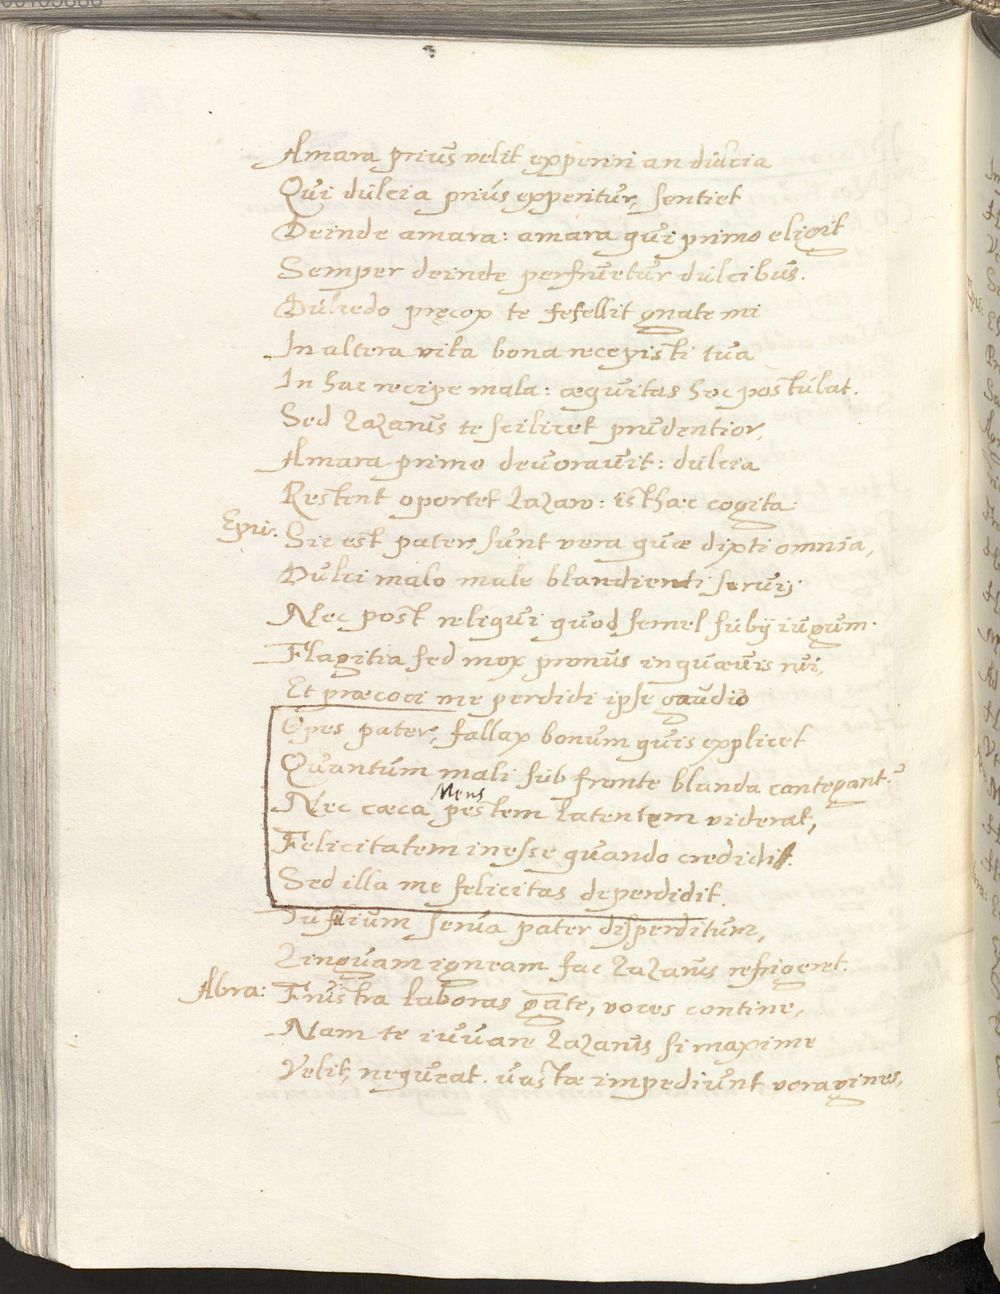 Amara prius velit experiri an dulcia
Qui dulcia prius experitur, sentiet
Deinde amara: amara qui primo eligit
Semper deinde perfruetur dulcibus.
Dulcedo pręcox te fefellit gnate mi
In altera vita bona recepisti tua
In hac recipe mala: æquitas hoc postulat.
Sed Lazarus te scilicet prudentior,
Amara primo devoravit: dulcia
Restent oportet Lazaro: isthæc cogita.
Epu: Sic est pater, sunt vera quæ dixti omnia,
Dulci malo male blandienti servij
Nec post reliqui quod semel subij iugum.
Flagitia sed mox pronus in quævis rui,
Et præcoci me perdidi ipse gaudio
Opes pater, fallax bonum quis explicet
Quantum mali sub fronte blanda contegant?
Nec cæca Mens pestem latentem viderat,
Felicitatem inesse quando credidit.
Sed illa me felicitas deperdidit.
Tu filium serva pater disperditum,
Linguam igneam fac Lazarus refrigeret.
Abra: Frustra laboras gnate, voces contine,
Nam te iuvare Lazarus si maxime
Velit, nequeat. vastæ impediunt voragines,